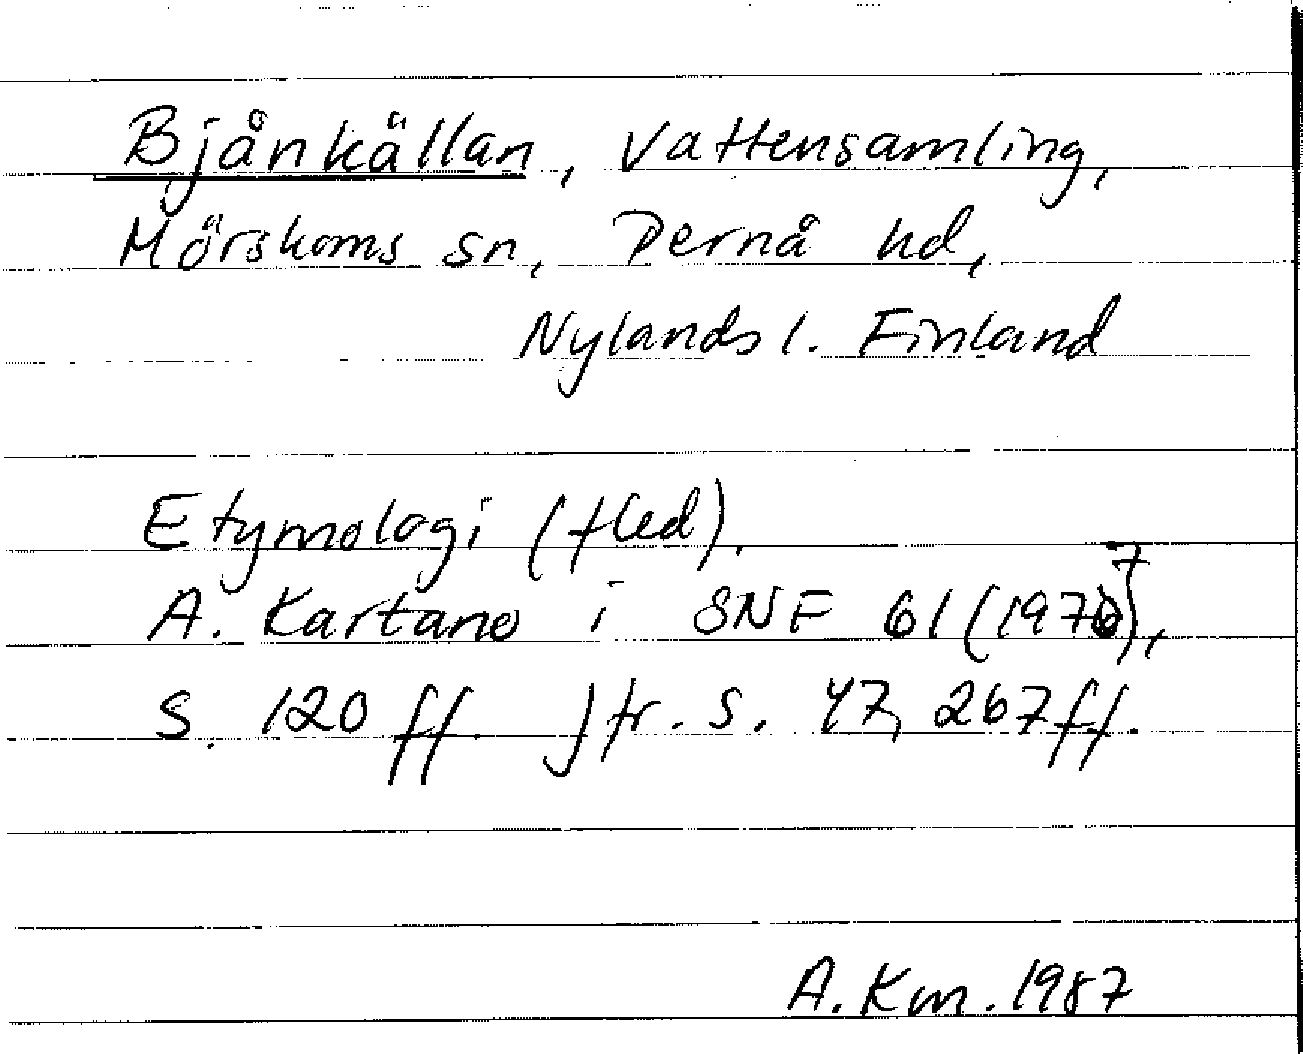 Bjånkällan, vattensamling,
Mörskoms sn, Pernå hd,
Nylands l. Finland
Etymologi (fled).
A. Kartano i SNF 61 (1977),
s. 120 ff. Jfr. s. 47, 267 ff.
A. Km. 1987